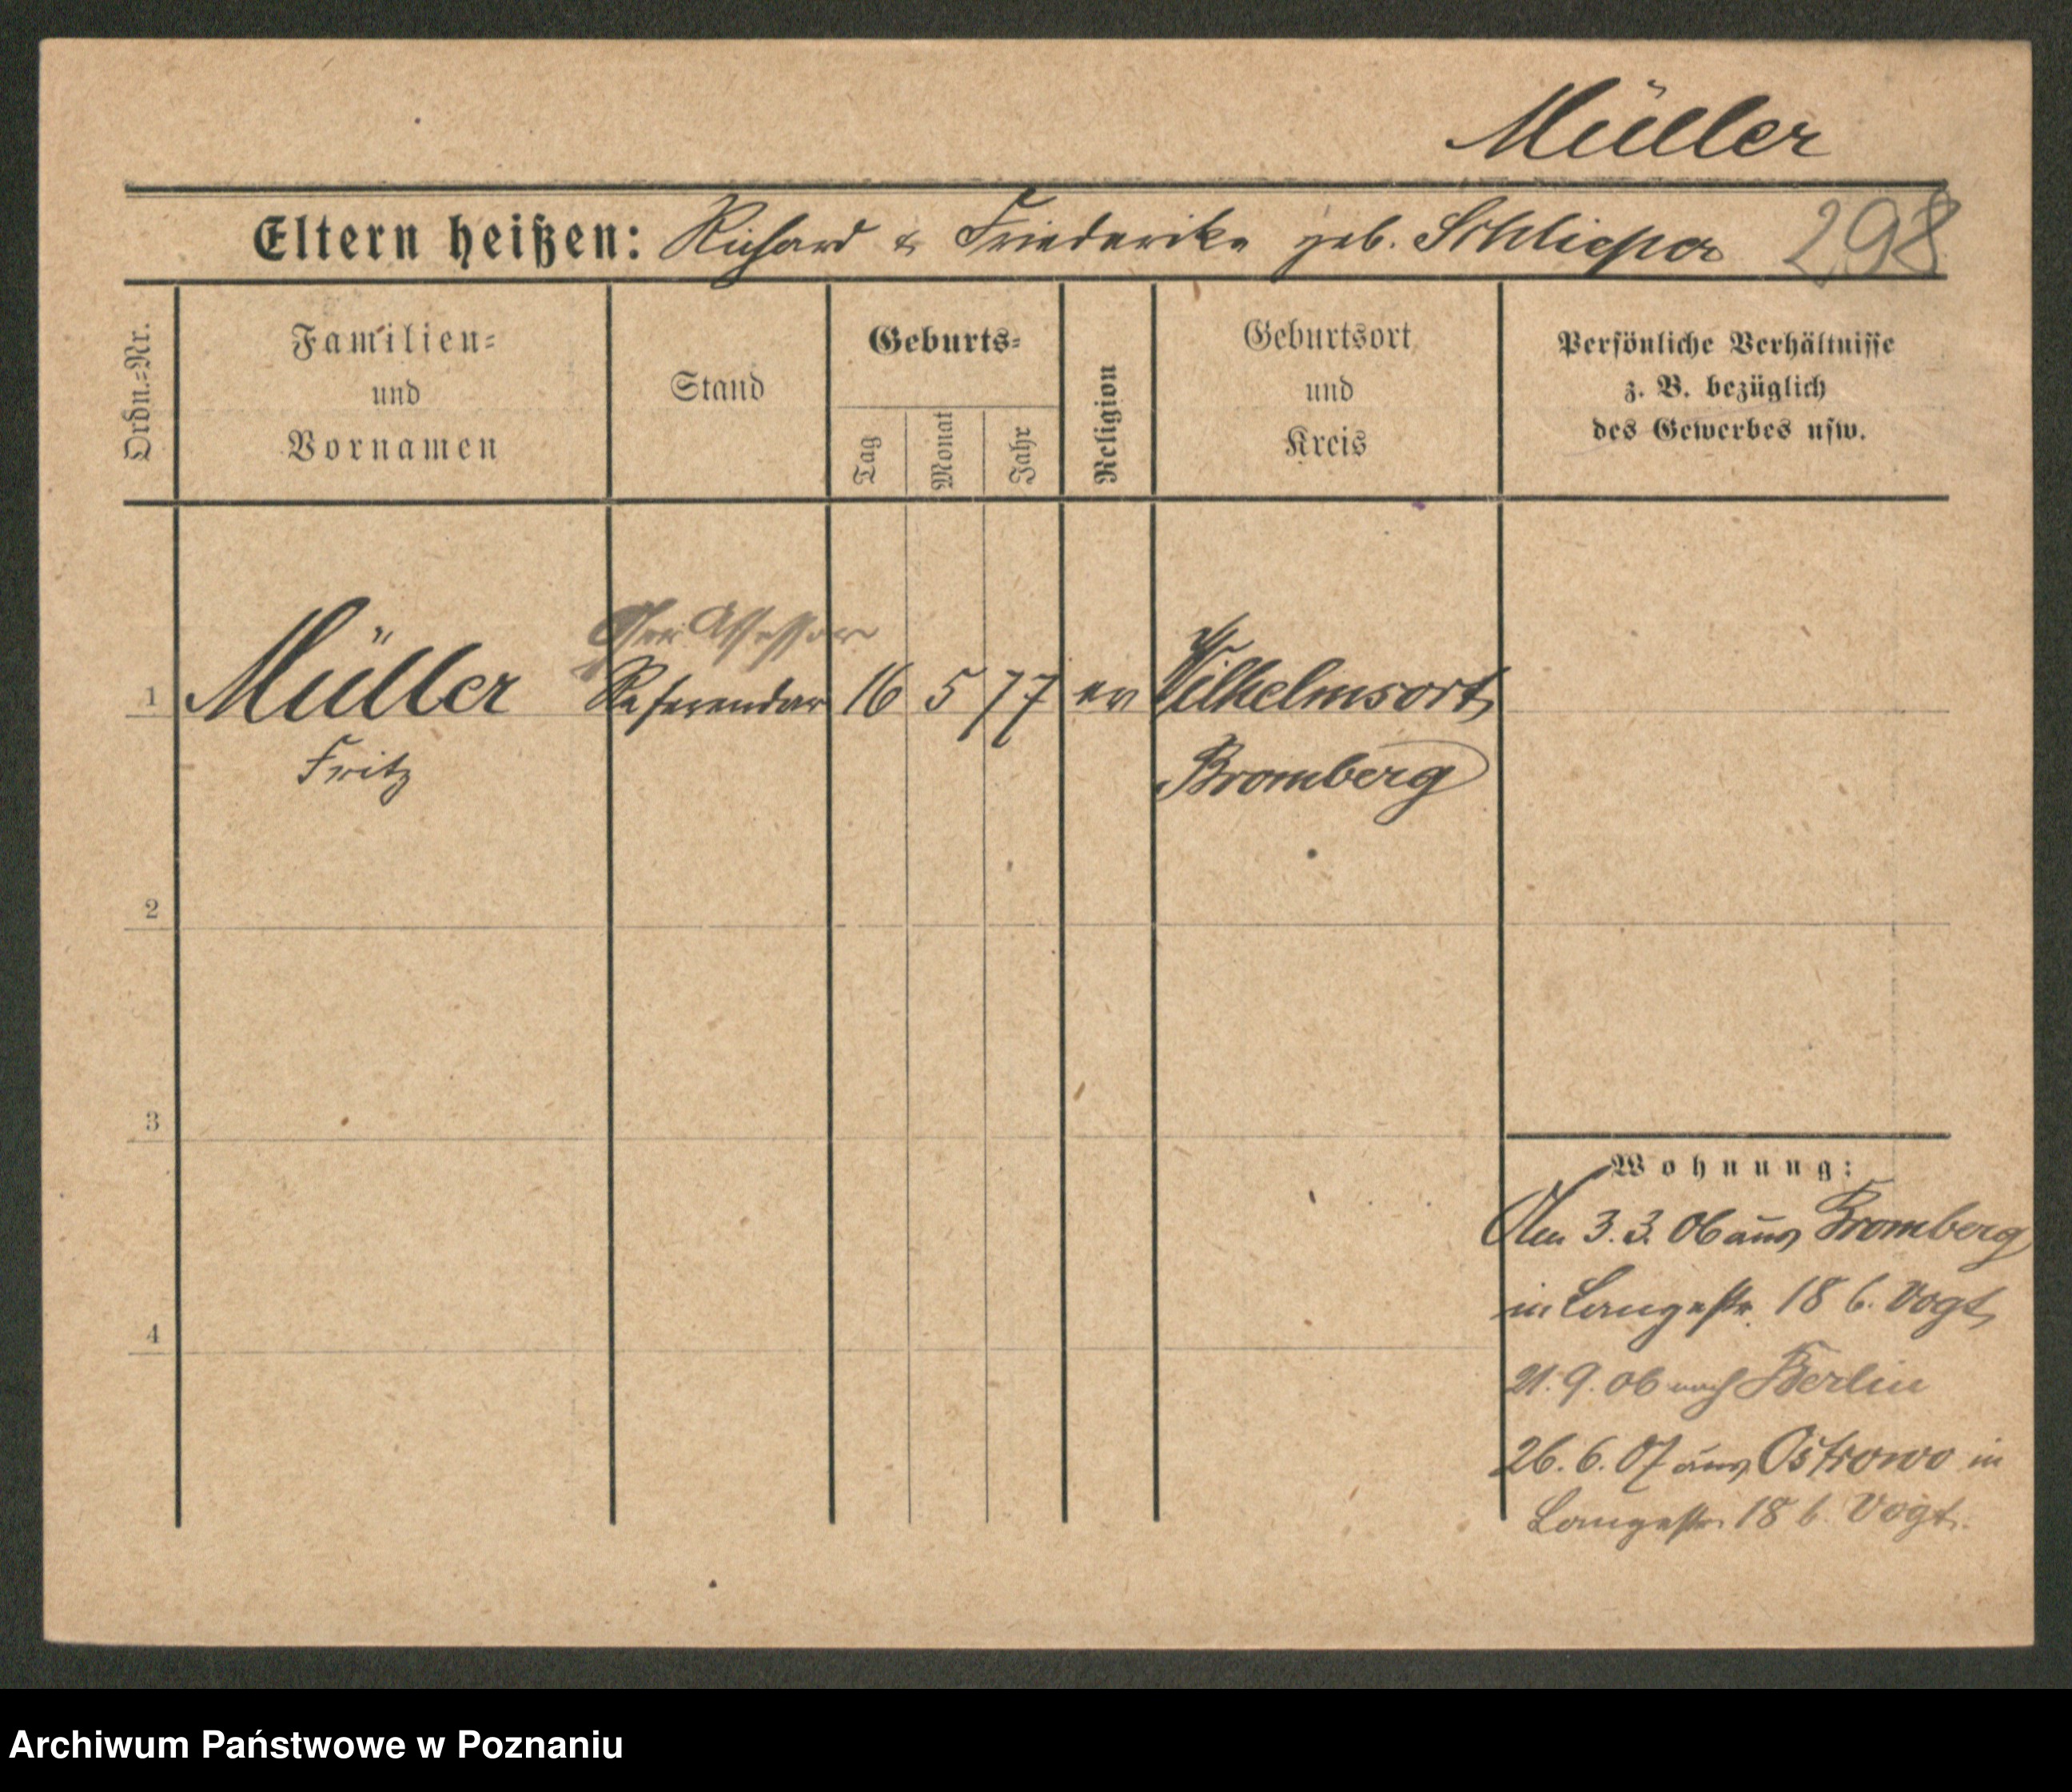 Müller
Eltern heißen: Richard & Friederike geb. Schlieper 298
Ordn.=Nr.
Familien=
und
Vornamen
Stand
Geburts=
Tag
Monat
Jahr
Religion
Geburtsort
und
Kreis
Persönliche Verhältnisse
z. B. bezüglich
des Gewerbes usw.
Assessor
1 Müller Referendar 16 5 77 ev Wilhelmsort
Fritz Bromberg
2
3
4
Wohnung:
3.3.06 aus Bromberg
in Langestr. 18 b. Vogt
21.9.06 nach Berlin
26.6.07 aus Ostrowo in
Langestr. 18 b. Vogt.
Archiwum Państwowe w Poznaniu